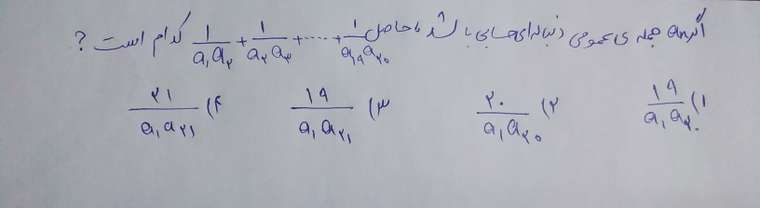 اگر aₙ جمله ی عمومی دنباله ای حسابی باشد حاصل 1/(a₁a₂) + 1/(a₂a₃) + ..... + 1/(a₁₉a₂₀) کدام است ؟
۱) ۱۹/(a₁a₂₀) ۲) ۲۰/(a₁a₂₀) ۳) ۱۹/(a₁a₂₁) ۴) ۲۱/(a₁a₂₁)